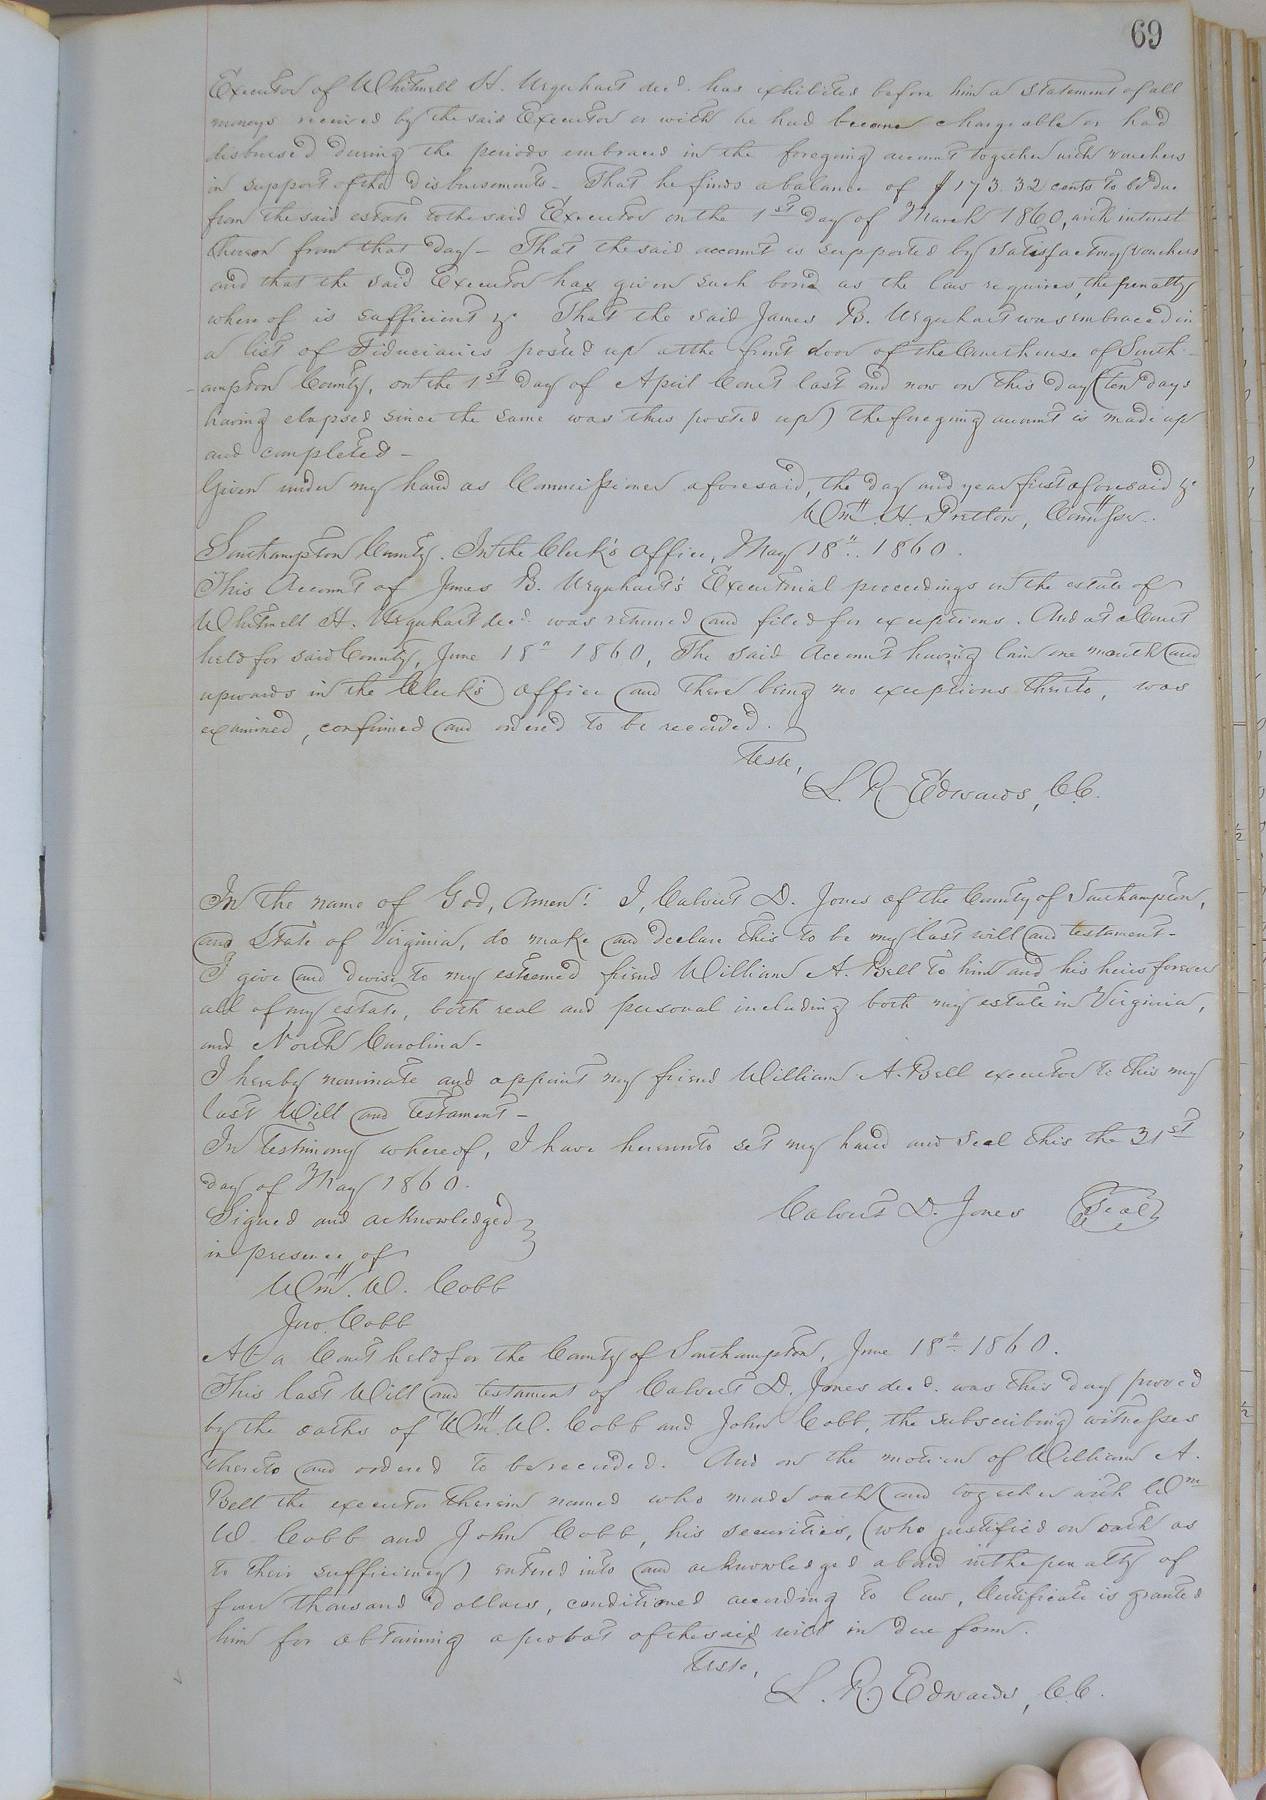 69
Executor of Whitmell H. Urquhart decd. has exhibited before him a statement of all
moneys received by the said Executor or with he had become chargeable or had
disbursed during the periods embraced in the foregoing account together with vouchers
in support of the disbursements - That he finds a balance of $173.32 cents to be due
from the said estate to the said Executor on the 1st day of March 1860, with interest
thereon from that day - That the said account is supported by satisfactory vouchers
and that the said Executor has given such bond as the law requires, the penalty
whereof is sufficient &c That the said James B. Urquhart was embraced in
a list of Fiduciaries posted up at the front door of the Courthouse of South-
-ampton County, on the 1st day of April Court last and now on this day (ten days
having elapsed since the same was thus posted up) the foregoing account is made up
and completed -
Given under my hand as Commissioner aforesaid, the day and year first aforesaid &c
Wm. H. Pretlow, Commsr.
Southampton County. In the Clerk's Office, May 18th. 1860.
This Account of James B. Urquhart's Executorial proceedings on the estate of
Whitmell H. Urquhart decd. was returned and filed for exceptions. And at a Court
held for said County, June 18th 1860, The said Account having lain one month and
upwards in the Clerk's office and there being no exceptions thereto, was
examined, confirmed and ordered to be recorded.
Teste,
L. R. Edwards, C.C.
In the name of God, Amen: I, Calvert D. Jones of the County of Southampton,
and State of Virginia, do make and declare this to be my last will and testament -
I give and devise to my esteemed friend William A. Bell to him and his heirs forever
all of my estate, both real and personal including both my estate in Virginia,
and North Carolina -
I hereby nominate and appoint my friend William A. Bell executor to this my
last Will and Testament -
In Testimony whereof, I have hereunto set my hand and Seal this the 31st
day of May 1860.
Signed and acknowledged } Calvert D. Jones (Seal)
in presence of
Wm. W. Cobb
Jno. Cobb
At a Court held for the County of Southampton, June 18th 1860.
This last Will and testament of Calvert D. Jones decd. was this day proved
by the oaths of Wm. W. Cobb and John Cobb, the subscribing witnesses
thereto and ordered to be recorded. And on the motion of William A.
Bell the executor therein named who made oath and together with Wm
W. Cobb and John Cobb, his securities, (who justified on oath as
to their sufficiency) entered into and acknowledged a bond in the penalty of
four thousand dollars, conditioned according to law, Certificate is granted
him for obtaining a probat of the said will in due form.
Teste,
L. R. Edwards, C.C.